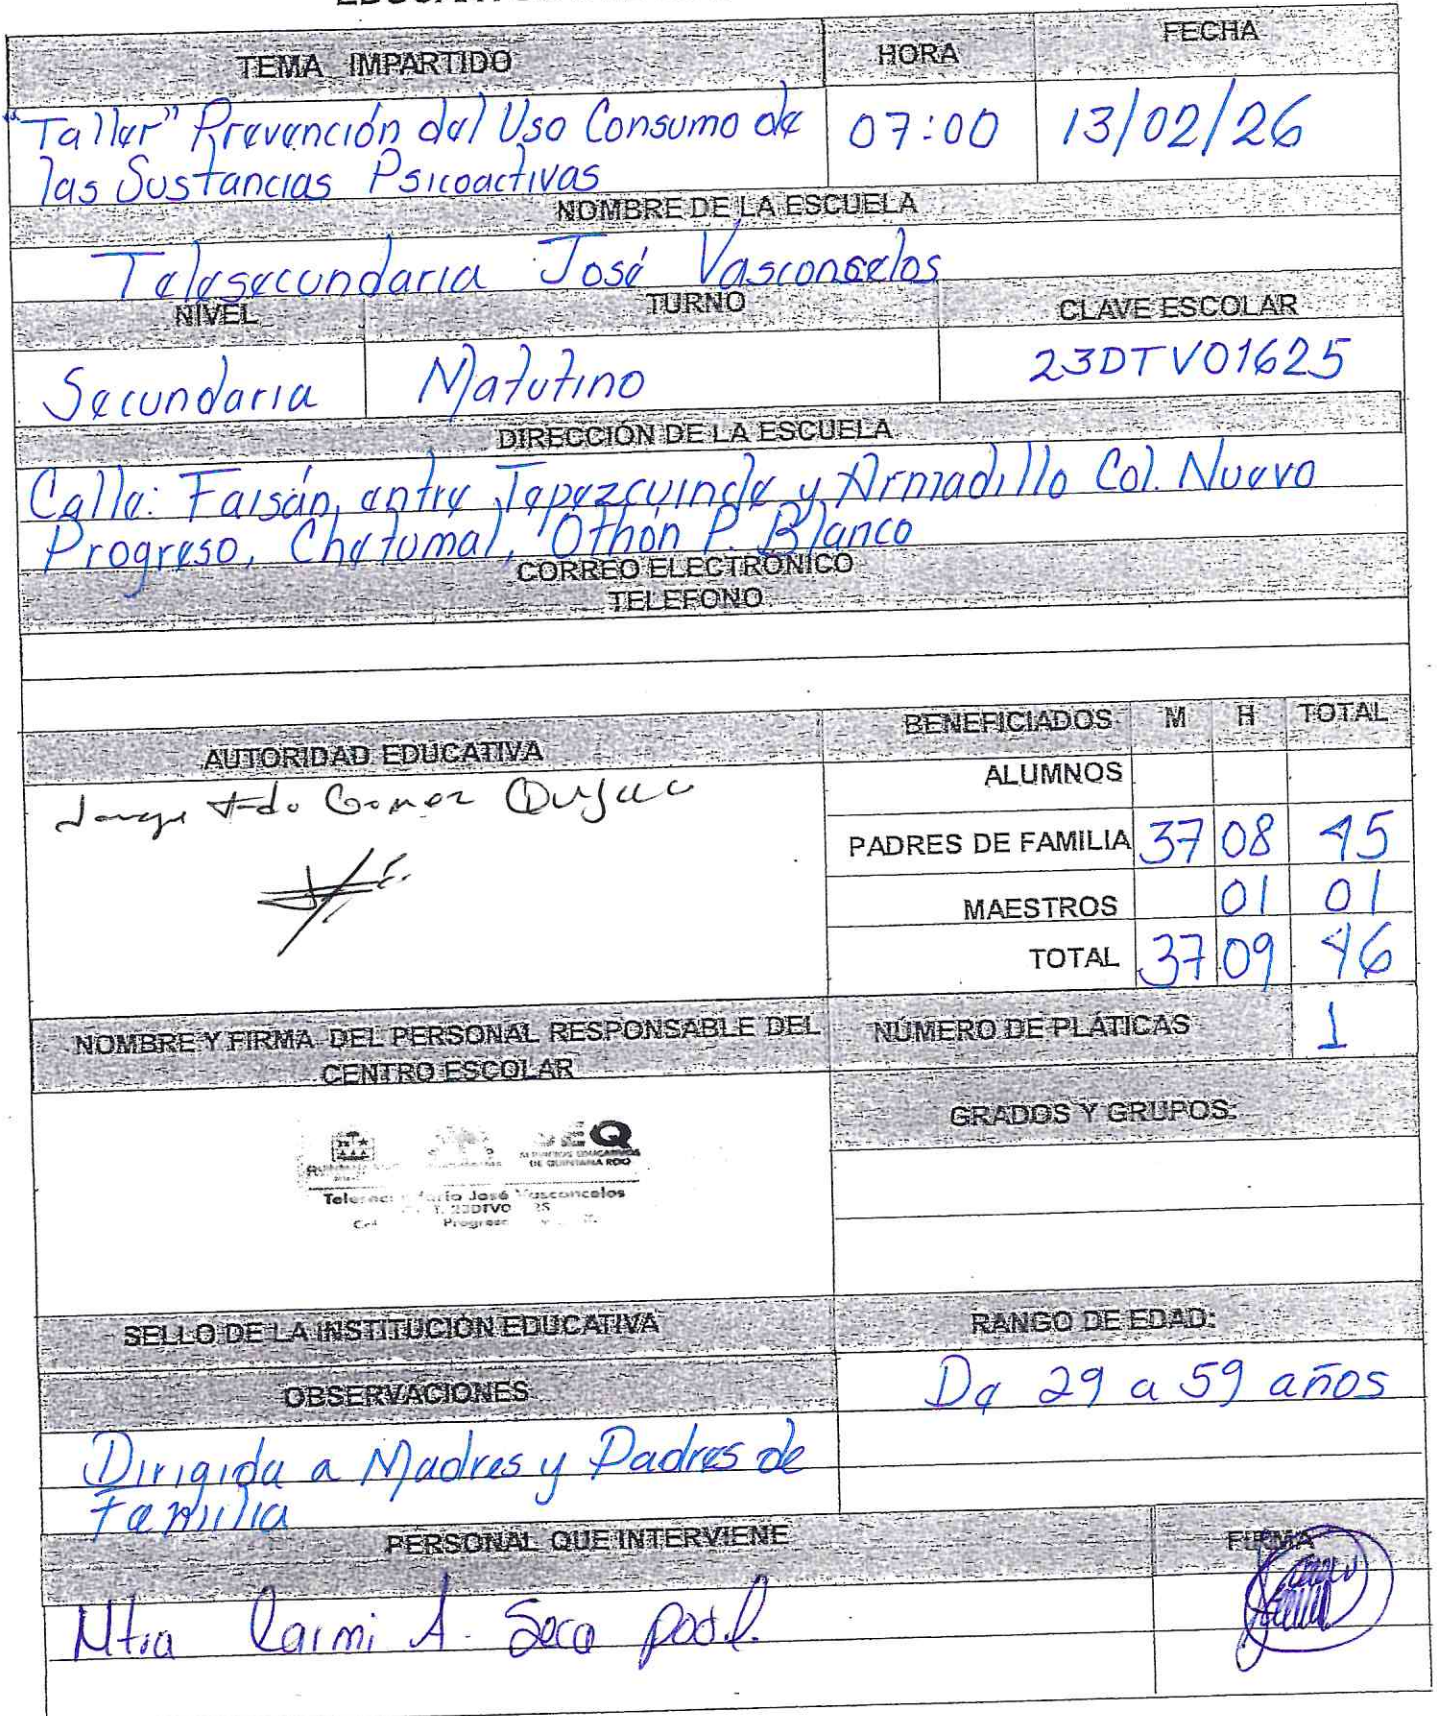 TEMA IMPARTIDO HORA FECHA
"Taller" Prevención del Uso Consumo de 07:00 13/02/26
las Sustancias Psicoactivas
NOMBRE DE LA ESCUELA
Telesecundaria José Vasconselos
NIVEL TURNO CLAVE ESCOLAR
Secundaria Matutino 23DTV01625
DIRECCIÓN DE LA ESCUELA
Calle: Faisán, entre Tepezcuincle y Armadillo Col. Nuevo
Progreso, Chetumal, Othon P. Blanco
CORREO ELECTRÓNICO
TELEFONO
AUTORIDAD EDUCATIVA BENEFICIADOS M H TOTAL
Jorge Gomez
ALUMNOS
PADRES DE FAMILIA 37 08 45
MAESTROS 01 01
TOTAL 37 09 46
NOMBRE Y FIRMA DEL PERSONAL RESPONSABLE DEL
CENTRO ESCOLAR
NÚMERO DE PLÁTICAS 1
GRADOS Y GRUPOS:
SEQ
SERVICIOS EDUCATIVOS
DE QUINTANA ROO
José Vasconcelos
SELLO DE LA INSTITUCIÓN EDUCATIVA RANGO DE EDAD:
OBSERVACIONES De 29 a 59 años
Dirigida a Madres y Padres de
familia
PERSONAL QUE INTERVIENE FIRMA
Mtra Carmi A.